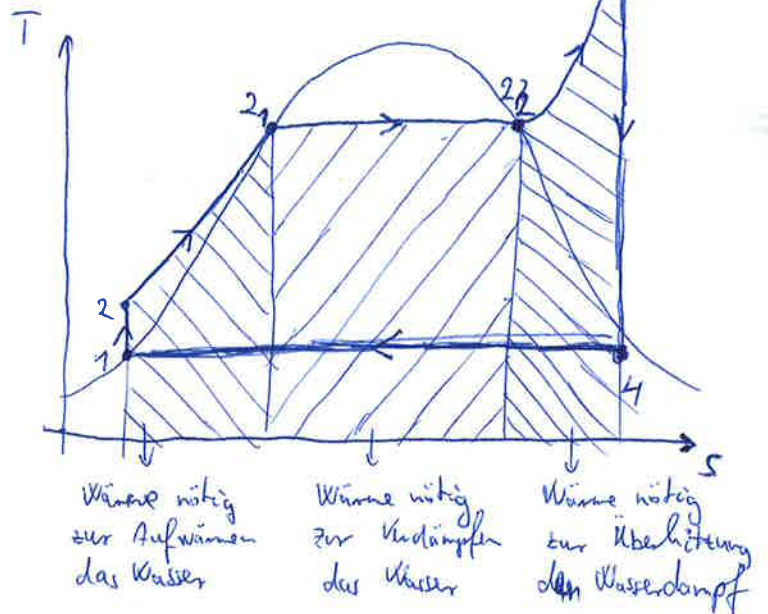 T
2₁
2₂
2
1
4
S
Wärme nötig
zur Aufwärmen
das Wasser
Wärme nötig
zur Verdämpfen
das Wasser
Wärme nötig
zur Überhitzung
den Wasserdampf